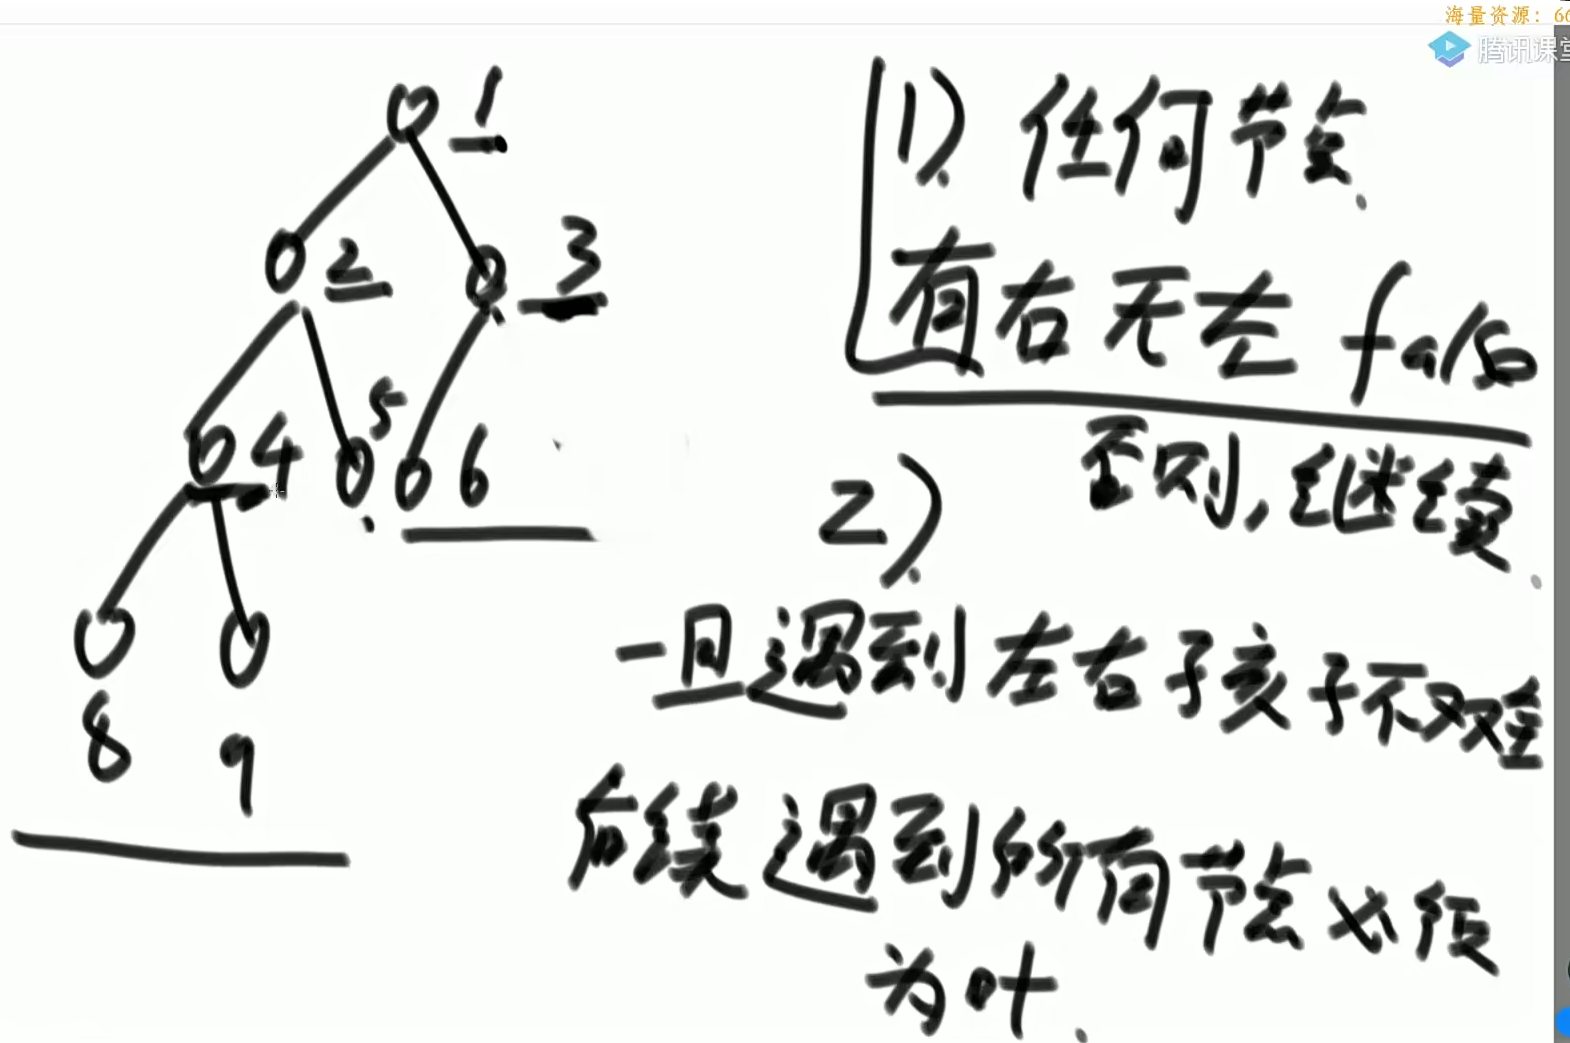 海量资源：66
腾讯课堂
1
2
3
4
5
6
8
9
1) 任何节点.
有右无左 false
否则,继续.
2)
一旦遇到左右子孩子不双全
后续遇到的所有节点必须
为叶.